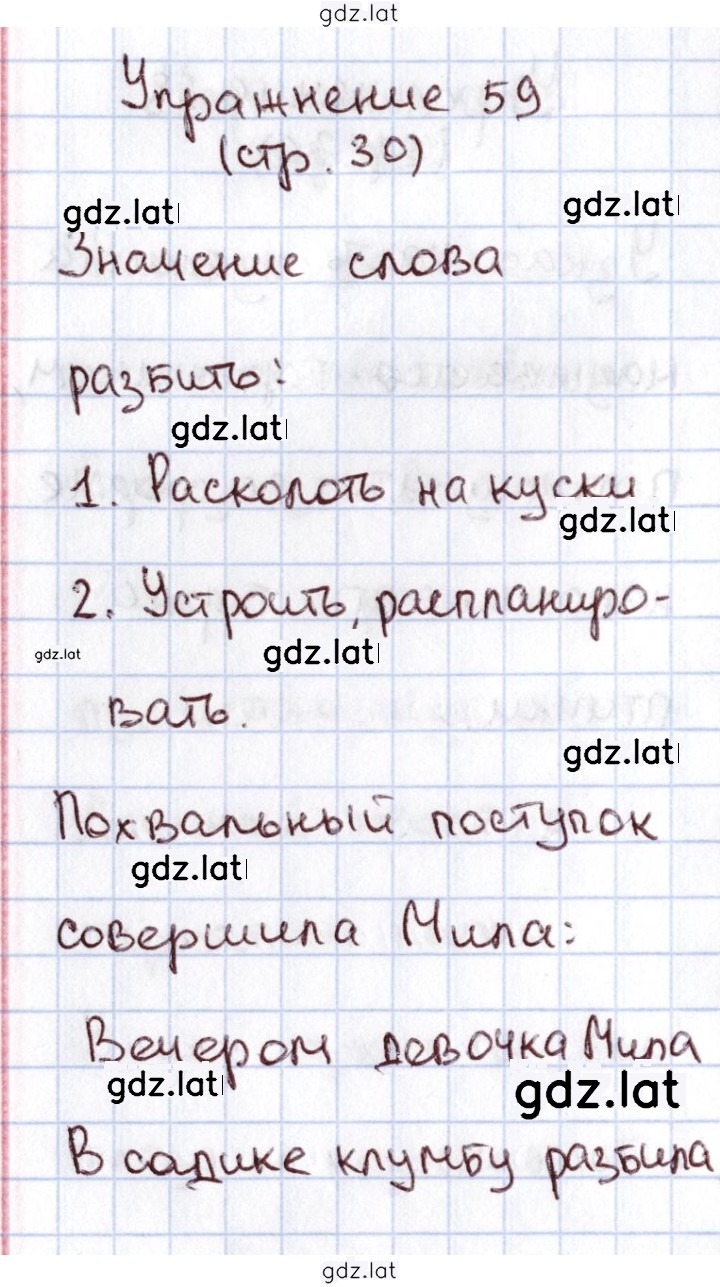 gdz.lat
Упражнение 59
(стр. 30)
gdz.lat
gdz.lat
Значение слова
разбить:
gdz.lat
1. Расколоть на куски
gdz.lat
2. Устроить, распланиро-
gdz.lat
gdz.lat
вать.
gdz.lat
Похвальный поступок
gdz.lat
совершила Мила:
Вечером девочка Мила
gdz.lat
gdz.lat
В садике клумбу разбила
gdz.lat